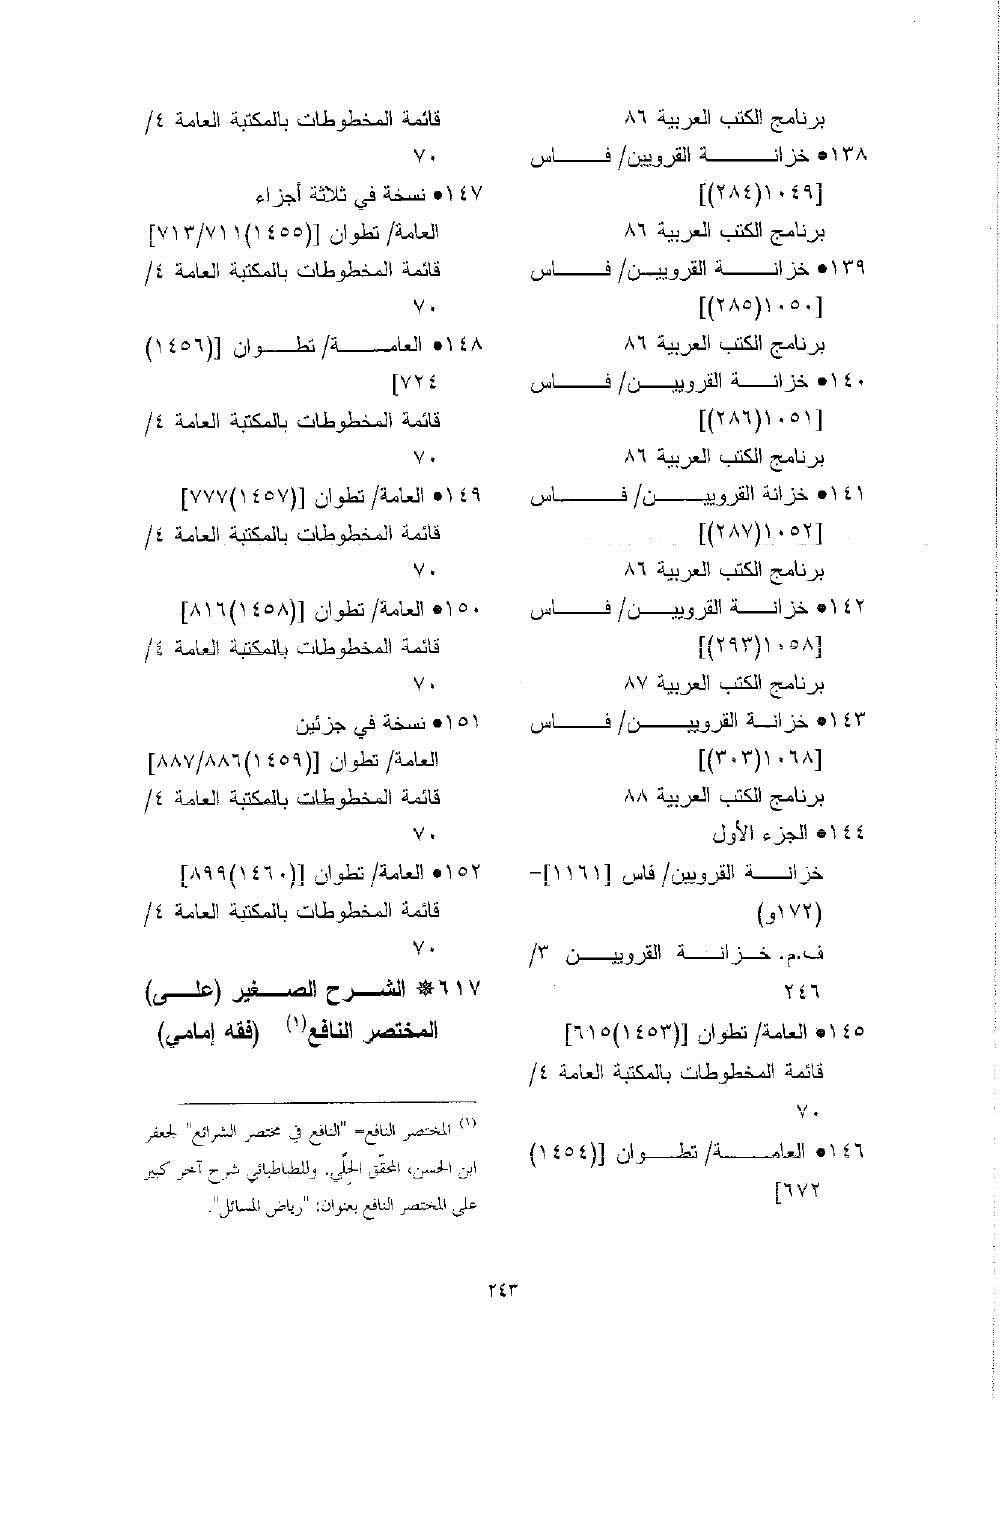 برنامج الكتب العربية ٨٦
١٣٨• خزانة القرويين/ فاس
[١٠٤٩(٢٨٤)]
برنامج الكتب العربية ٨٦
١٣٩• خزانة القرويين/ فاس
[١٠٥٠(٢٨٥)]
برنامج الكتب العربية ٨٦
١٤٠• خزانة القرويين/ فاس
[١٠٥١(٢٨٦)]
برنامج الكتب العربية ٨٦
١٤١• خزانة القرويين/ فاس
[١٠٥٢(٢٨٧)]
برنامج الكتب العربية ٨٦
١٤٢• خزانة القرويين/ فاس
[١٠٥٨(٢٩٣)]
برنامج الكتب العربية ٨٧
١٤٣• خزانة القرويين/ فاس
[١٠٦٨(٣٠٣)]
برنامج الكتب العربية ٨٨
١٤٤• الجزء الأول
خزانة القرويين/ فاس [١١٦١]-
(١٧٢و)
ف.م. خزانة القرويين ٣/
٢٤٦
١٤٥• العامة/ تطوان [(١٤٥٣)٦١٥]
قائمة المخطوطات بالمكتبة العامة ٤/
٧٠
١٤٦• العامة/ تطوان [(١٤٥٤)
٦٧٢]
قائمة المخطوطات بالمكتبة العامة ٤/
٧٠
١٤٧• نسخة في ثلاثة أجزاء
العامة/ تطوان [(١٤٥٥)٧١٣/٧١١]
قائمة المخطوطات بالمكتبة العامة ٤/
٧٠
١٤٨• العامة/ تطوان [(١٤٥٦)
٧٢٤]
قائمة المخطوطات بالمكتبة العامة ٤/
٧٠
١٤٩• العامة/ تطوان [(١٤٥٧)٧٧٧]
قائمة المخطوطات بالمكتبة العامة ٤/
٧٠
١٥٠• العامة/ تطوان [(١٤٥٨)٨١٦]
قائمة المخطوطات بالمكتبة العامة ٤/
٧٠
١٥١• نسخة في جزئين
العامة/ تطوان [(١٤٥٩)٨٨٧/٨٨٦]
قائمة المخطوطات بالمكتبة العامة ٤/
٧٠
١٥٢• العامة/ تطوان [(١٤٦٠)٨٩٩]
قائمة المخطوطات بالمكتبة العامة ٤/
٧٠
٦١٧* الشرح الصغير (على)
المختصر النافع(١) (فقه إمامي)
(١) المختصر النافع= "النافع في مختصر الشرائع" لجعفر
ابن الحسن، المحقّق الحِلّي. وللطباطبائي شرح آخر كبير
على المختصر النافع بعنوان: "رياض المسائل".
٢٤٣